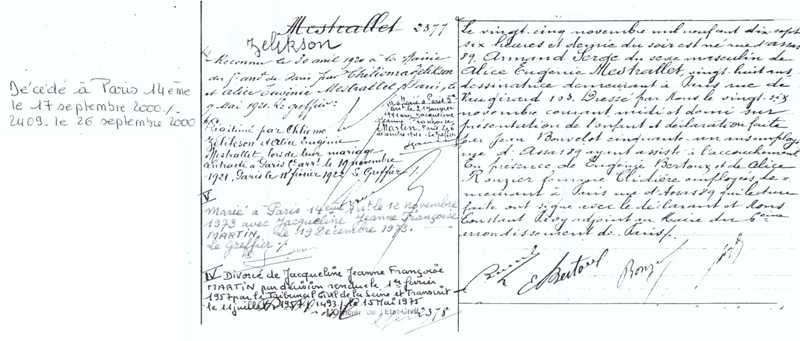 Décédé à Paris 14ème
le 17 septembre 2000./.
2409. le 26 septembre 2000
Mestrallet 2377
Zelikson
Reconnu le 30 avril 1920 à la Mairie
du 5e arrt de Paris par
et Alice Eugénie Mestrallet Paris, le
9 Mai 1921. Le greffier
Légitimé par
Zelikson et Alice Eugénie
Mestrallet lors de leur mariage
contracté à Paris arrt le 19 novembre
1921. Paris le février 192 Le Greffier
V
Marié à Paris 14ème le 12 novembre
1973 avec Jacqueline Jeanne Françoise
MARTIN. Le 19 Décembre 1973.
Le Greffier
IV Divorcé de Jacqueline Jeanne Françoise
MARTIN par décision rendue le 1er février
1957 par le Tribunal Civil de la Seine et Transcrit
le 11 juillet 1957 le 15 Mai 1975
2378
Le vingt cinq novembre mil neuf cent dix sept
six heures et demie du soir est né rue d'Assas
89, Armand Serge du sexe masculin de
Alice Eugénie Mestrallet, vingt huit ans,
dessinatrice demeurant à Paris rue de
Vaugirard 103. Dressé par Nous le vingt six
novembre courant midi et demi sur
présentation de l'enfant et déclaration faite
par cinquante un ans employée
rue d'Assas 89 ayant assisté à l'accouchement
En présence de Eugénie Bertoux et de Alice
employées, de-
meurant à Paris rue d'Assas 89 qui lecture
faite ont signé avec le déclarant et Nous
Constant adjoint au Maire du 6ème
arrondissement de Paris